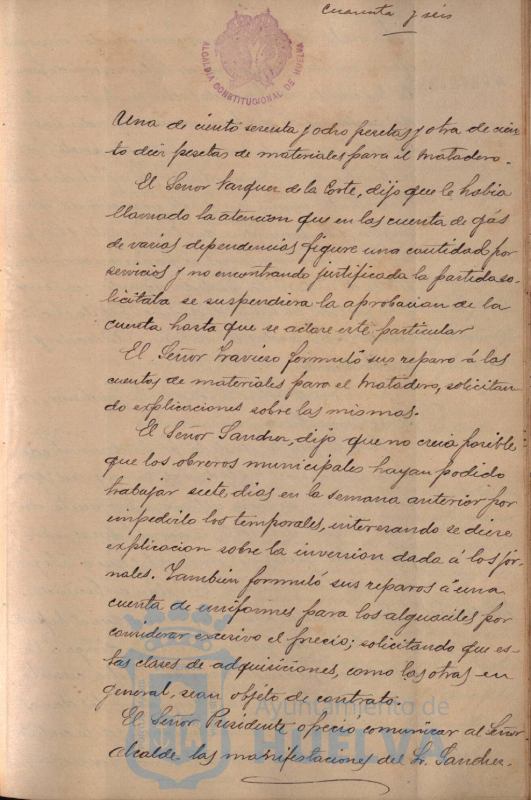 Cuarenta y seis
ALCALDIA CONSTITUCIONAL DE HUELVA
Una de ciento sesenta y ocho pesetas y otra de cien
to diez pesetas de materiales para el Matadero.
El Señor Vazquez de la Corte, dijo que le habia
llamado la atencion que en las cuenta de gás
de varias dependencias figure una cantidad por
servicios y no encontrando justificada la partida so-
licitaba se suspendiera la aprobacion de la
cuenta hasta que se aclare este particular
El Señor Travieso formuló sus reparo á las
cuentas de materiales para el Matadero, solicitan
do explicaciones sobre las mismas.
El Señor Sanchez, dijo que no creia posible
que los obreros municipales hayan podido
trabajar siete dias en la semana anterior por
impedirlo los temporales, interesando se diese
explicacion sobre la inversion dada á los jor-
nales. Tambien formuló sus reparos á una
cuenta de uniformes para los alguaciles por
considerar excesivo el precio; solicitando que es-
tas clases de adquisiciones, como las otras en
general, sean objeto de contrato.
El Señor Presidente ofrecio comunicar al Señor
Alcalde las manifestaciones del Sr. Sanchez.
Ayuntamiento de
HUELVA